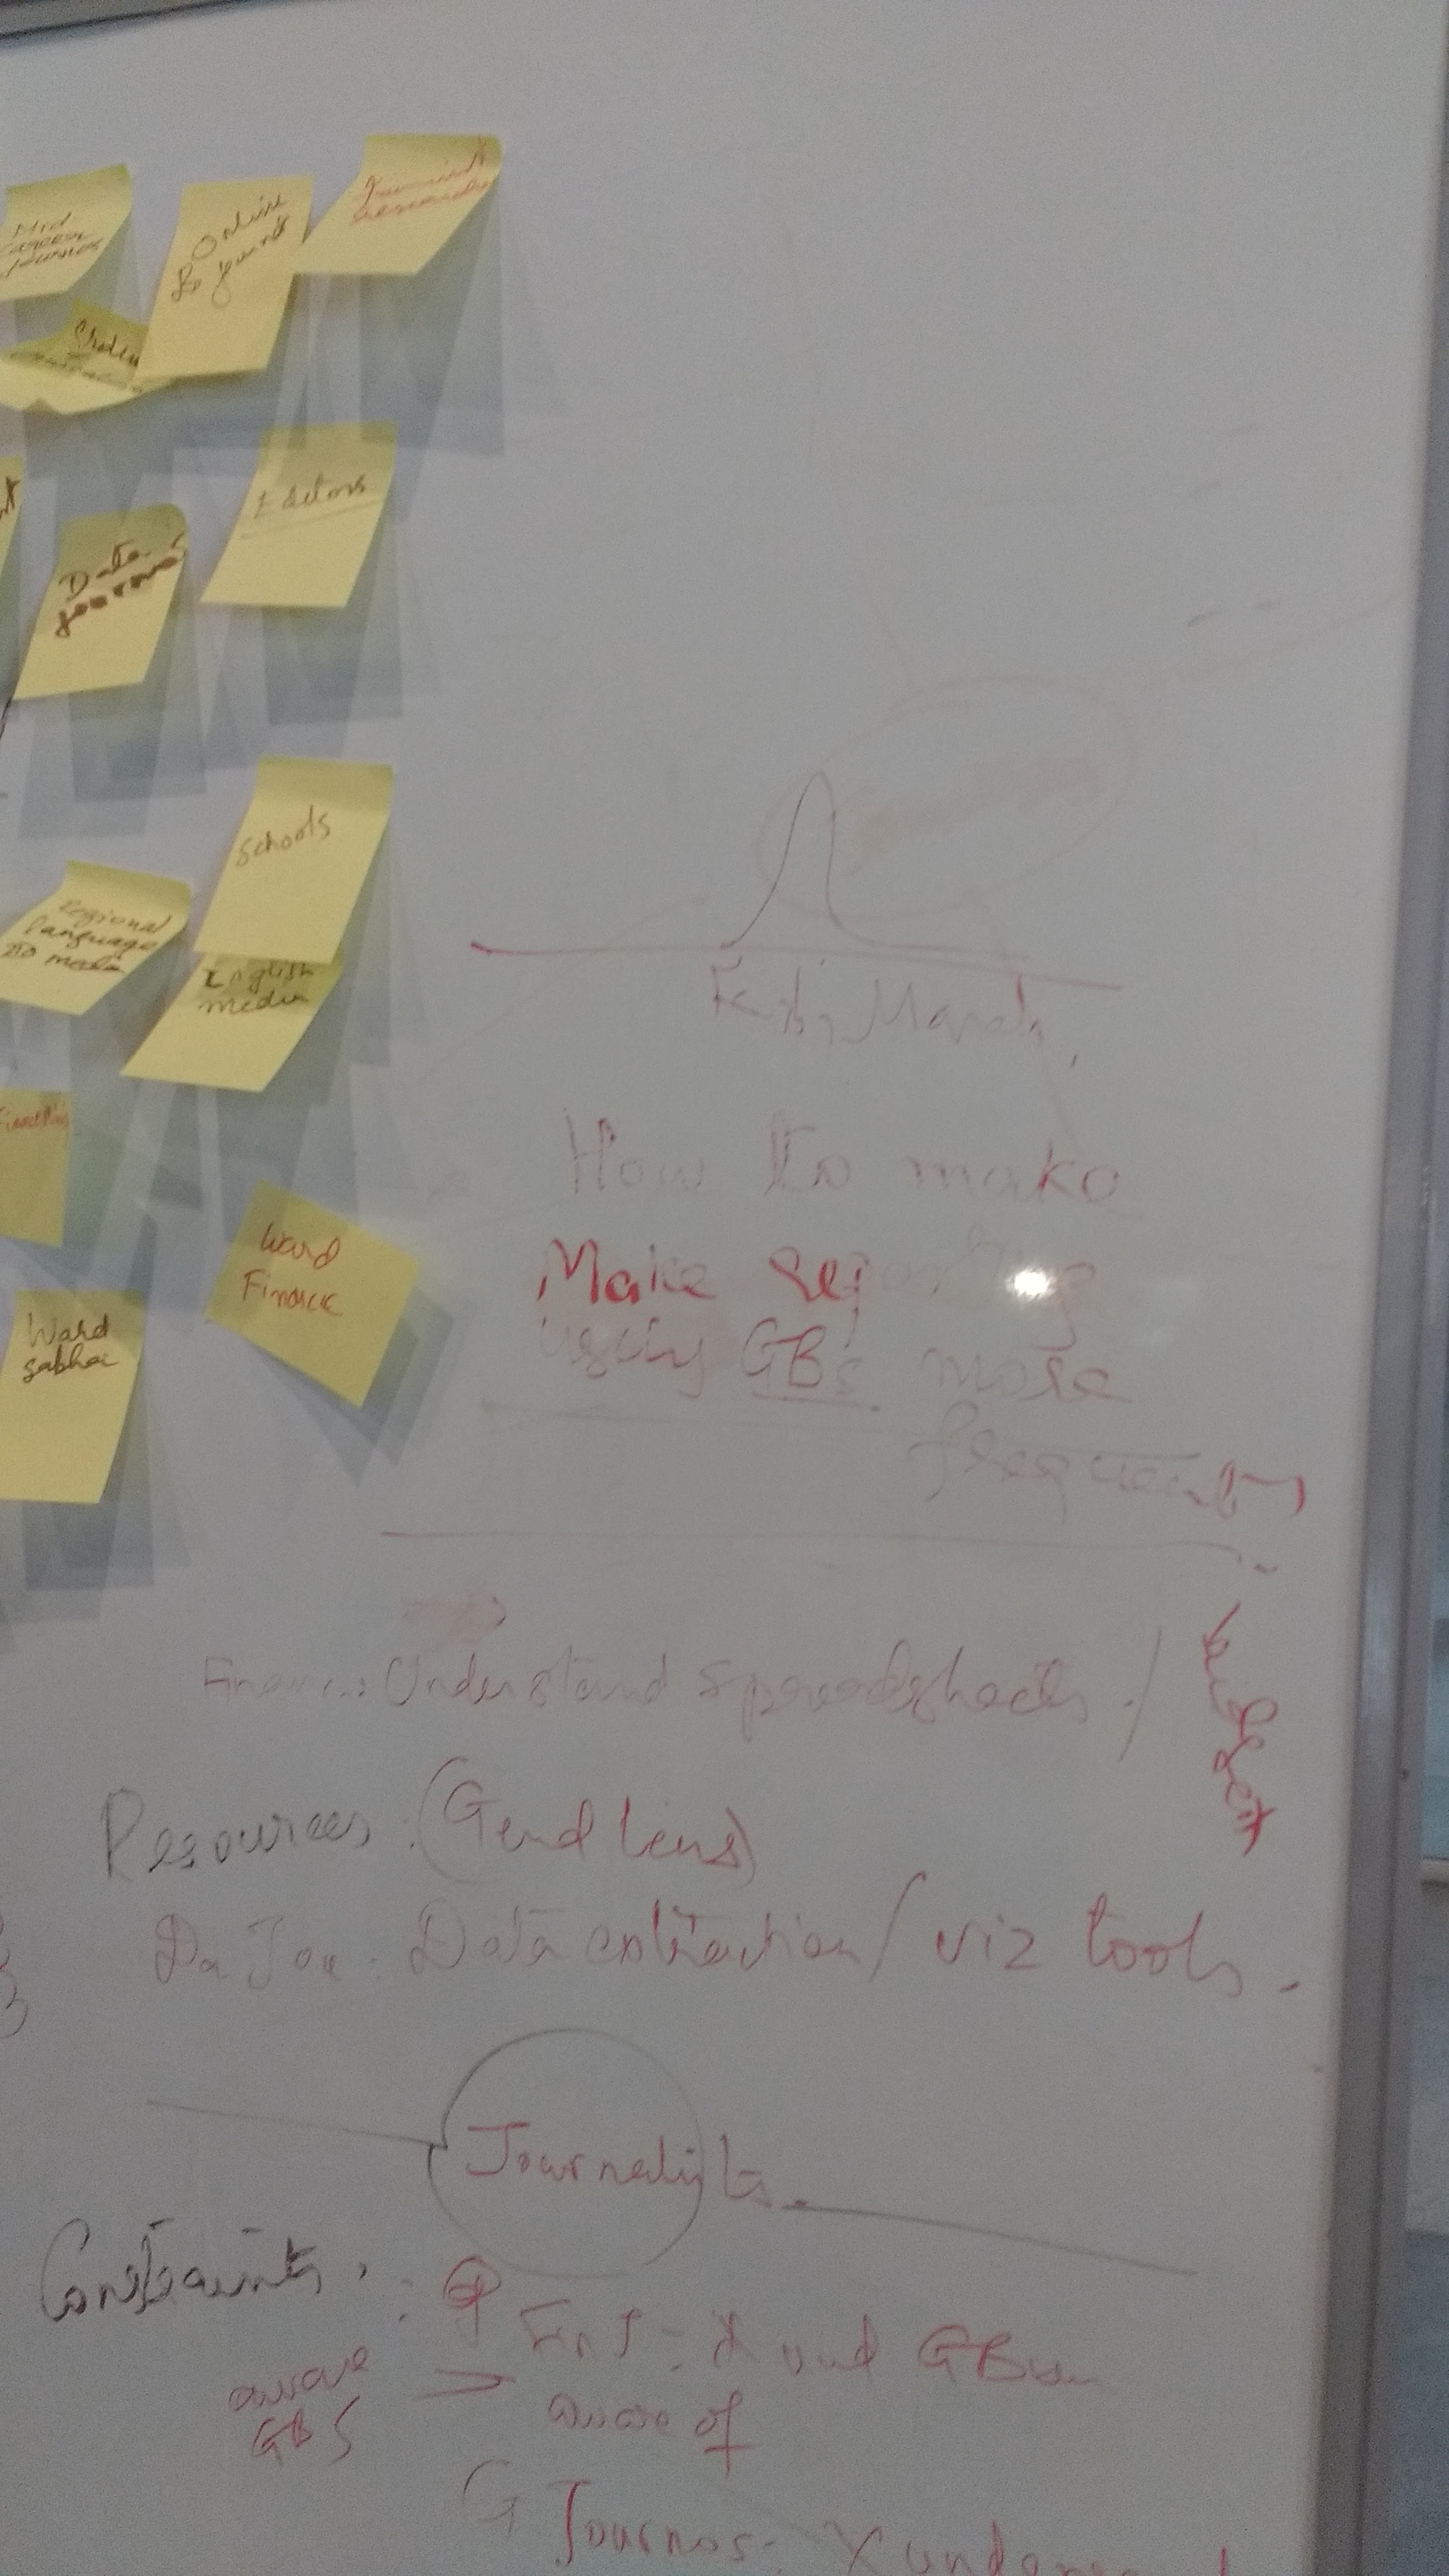 Mid
career
journos
Online
journos
Financial
Editors
Data
journos
Schools
Regional
Language
media
English
media
Ward
Finance
Ward
sabha
Feb, March,
How to make
Make reporting
using GB's more
frequently
budget
Understand spreadsheets /
Resources: (Gend lens)
Da Jou: Data extraction / viz tools.
Journalists
Constraints:
FnJ: X und GB
aware
GBS
aware of
G
Journos: X